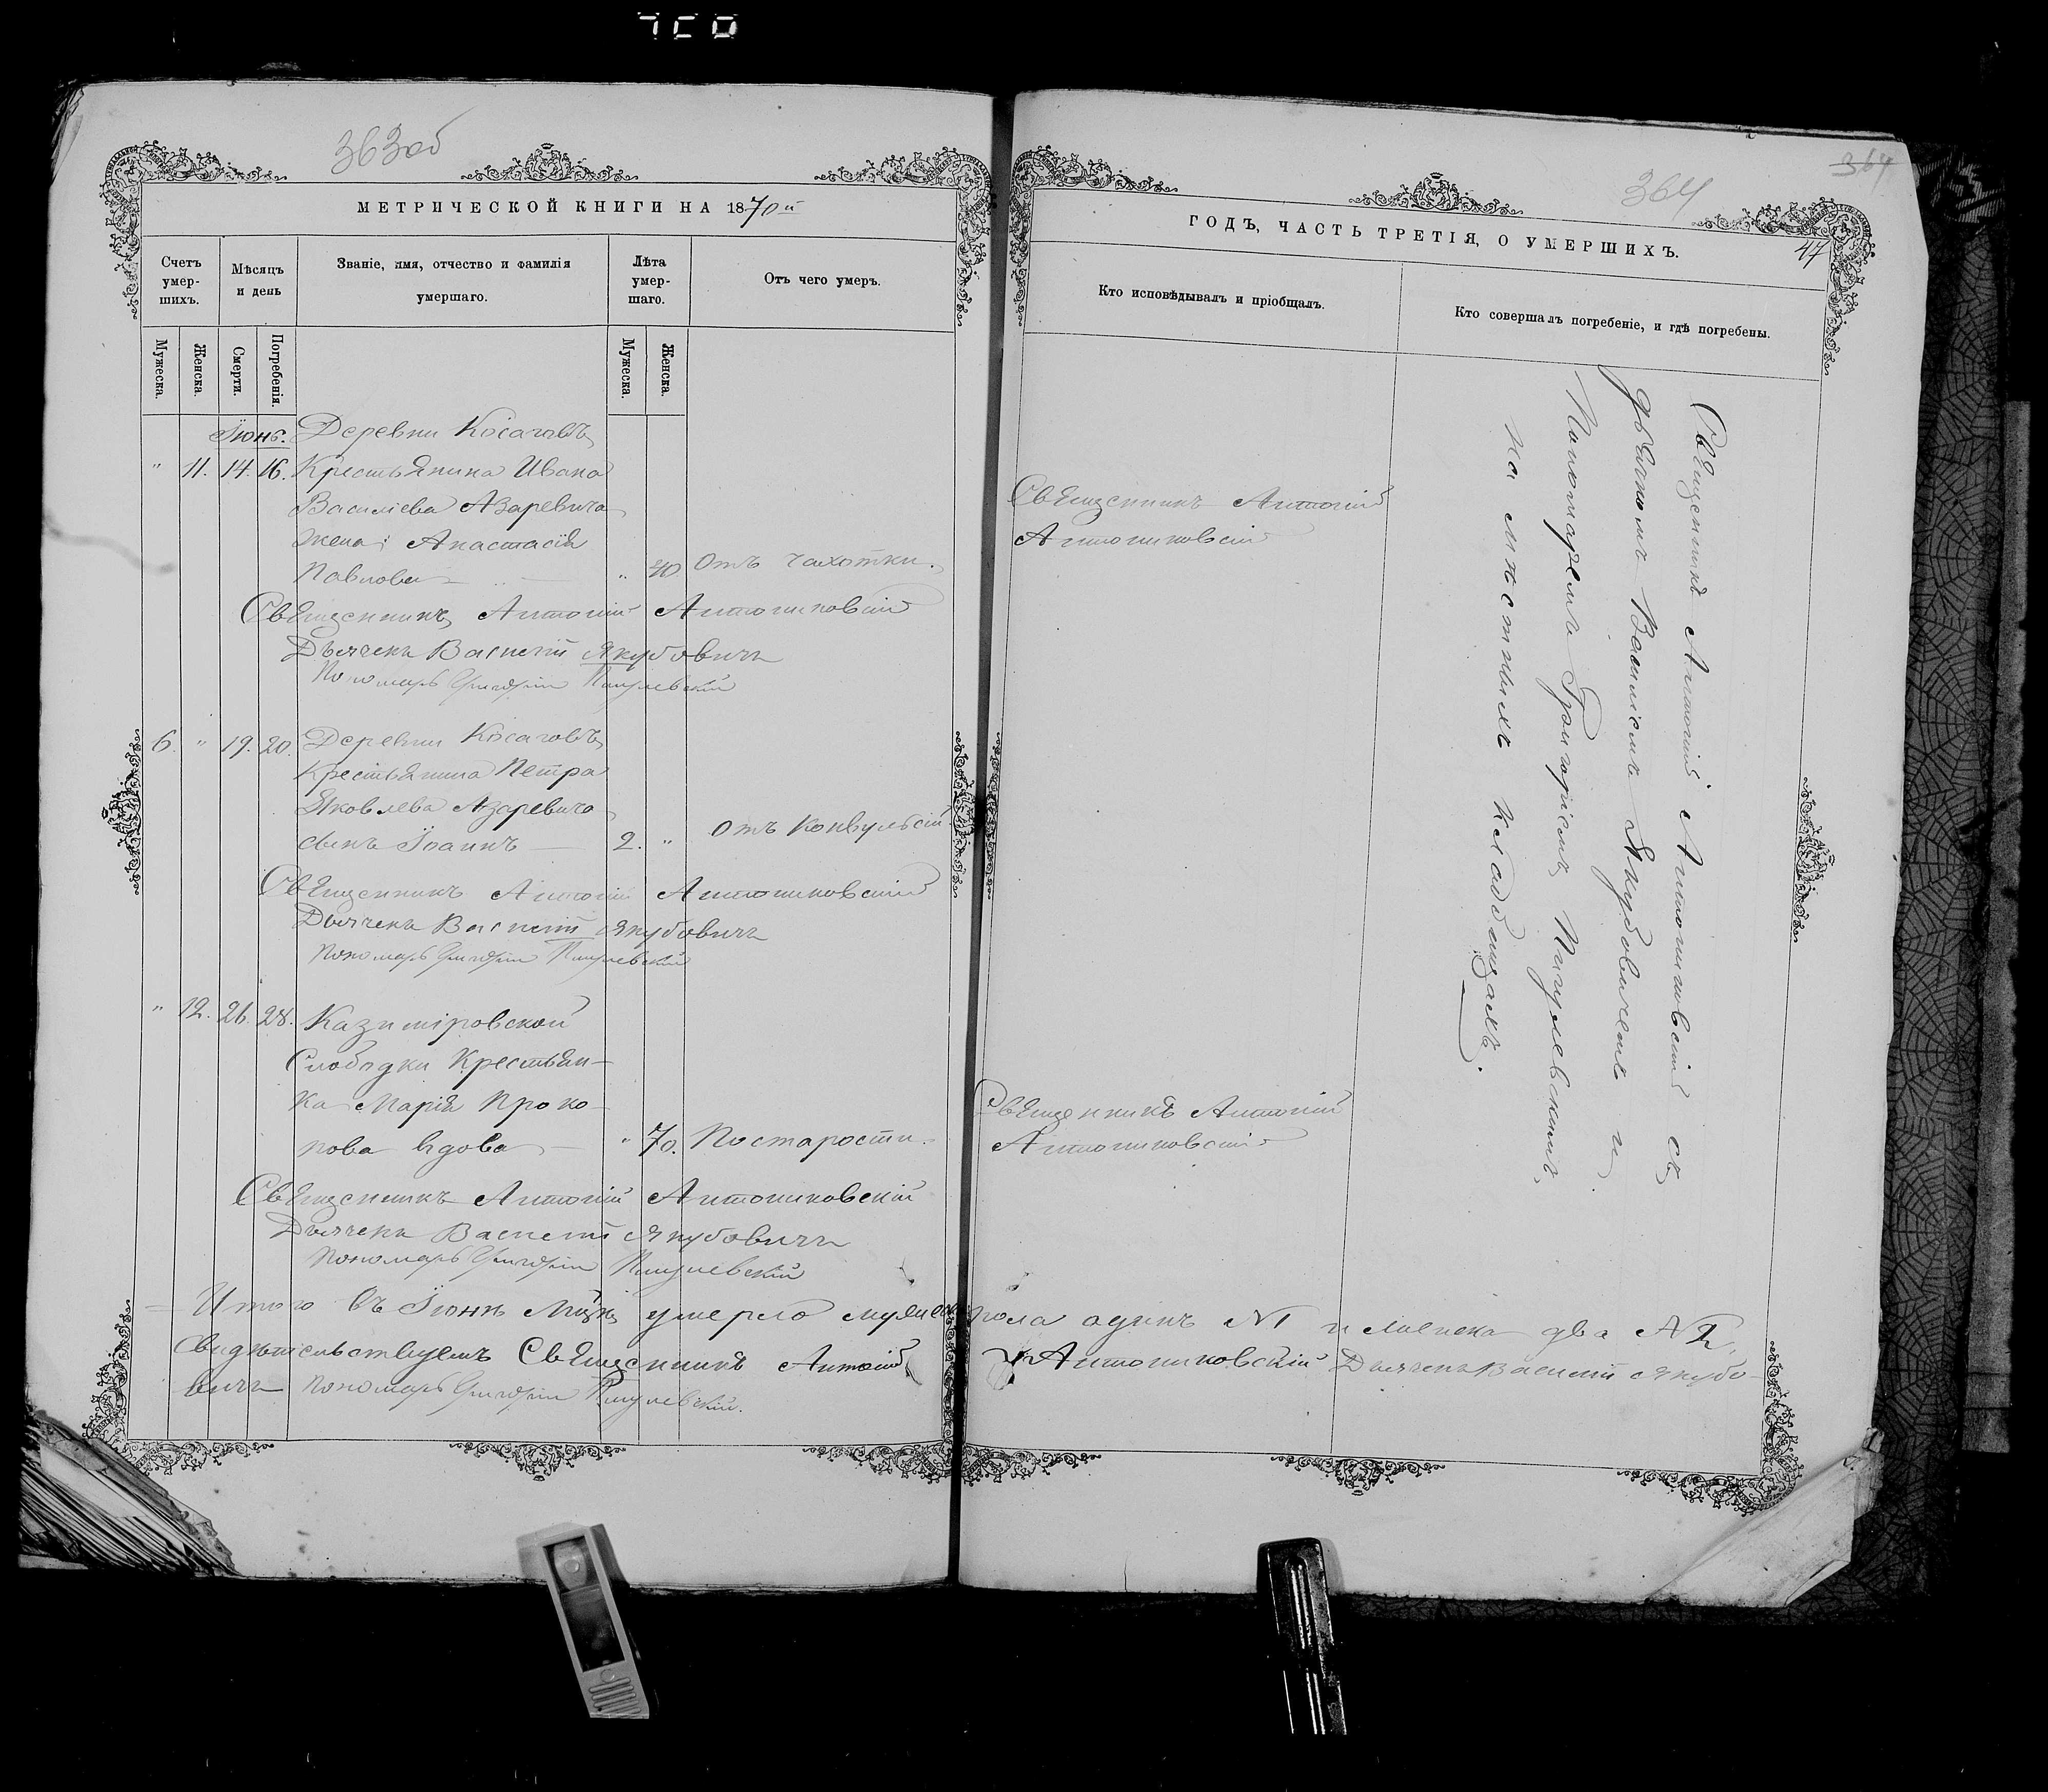 363об
МЕТРИЧЕСКОЙ КНИГИ НА 1870й
Счетъ умер-шихъ.
Мѣсяцъ и день
Званіе, имя, отчество и фамилія умершаго.
Лѣта умер-шаго.
Отъ чего умеръ.
Мужеска.
Женска.
Смерти.
Погребенія.
Мужеска.
Женска.
Іюнь. Деревни Косаговъ
" 11. 14. 16. Крестьянина Ивана
Василіева Азаревича
жена Анастасія
Павлова — " 40. Отъ чахотки.
Священникъ Антоній Антониковскій
Дьячекъ Василій Якубовичъ
Пономарь Григорій Пигулевскій
6. " 19. 20. Деревни Косаговъ
Крестьянина Петра
Яковлева Азаревича
сынъ Іоаннъ — 2. " Отъ Конвульсій
Священникъ Антоній Антониковскій
Дьячекъ Василій Якубовичъ
Пономарь Григорій Пигулевскій
" 12. 26. 28. Казиміровской
Слободки Крестьян-
ка Марія Проко-
пова вдова — " 70. По старости.
Священникъ Антоній Антониковскій
Дьячекъ Василій Якубовичъ
Пономарь Григорій Пигулевскій
Итого въ Іюнѣ Мцѣ умерло мужеска пола одинъ №1 и женска два №2.
Свидѣтельствуемъ Священникъ Антоній Антониковскій Дьячекъ Василій Якубо-
вичъ Пономарь Григорій Пигулевскій.
364
364
47
ГОДЪ, ЧАСТЬ ТРЕТІЯ, О УМЕРШИХЪ.
Кто исповѣдывалъ и пріобщалъ.
Кто совершалъ погребеніе, и гдѣ погребены.
Священникъ Антоній
Антониковскій
Священникъ Антоній
Антониковскій
Священникъ Антоній Антониковскій съ
дьячкомъ Василіемъ Якубовичемъ и
Пономаремъ Григоріемъ Пигулевскимъ,
на мѣстныхъ кладбищахъ.